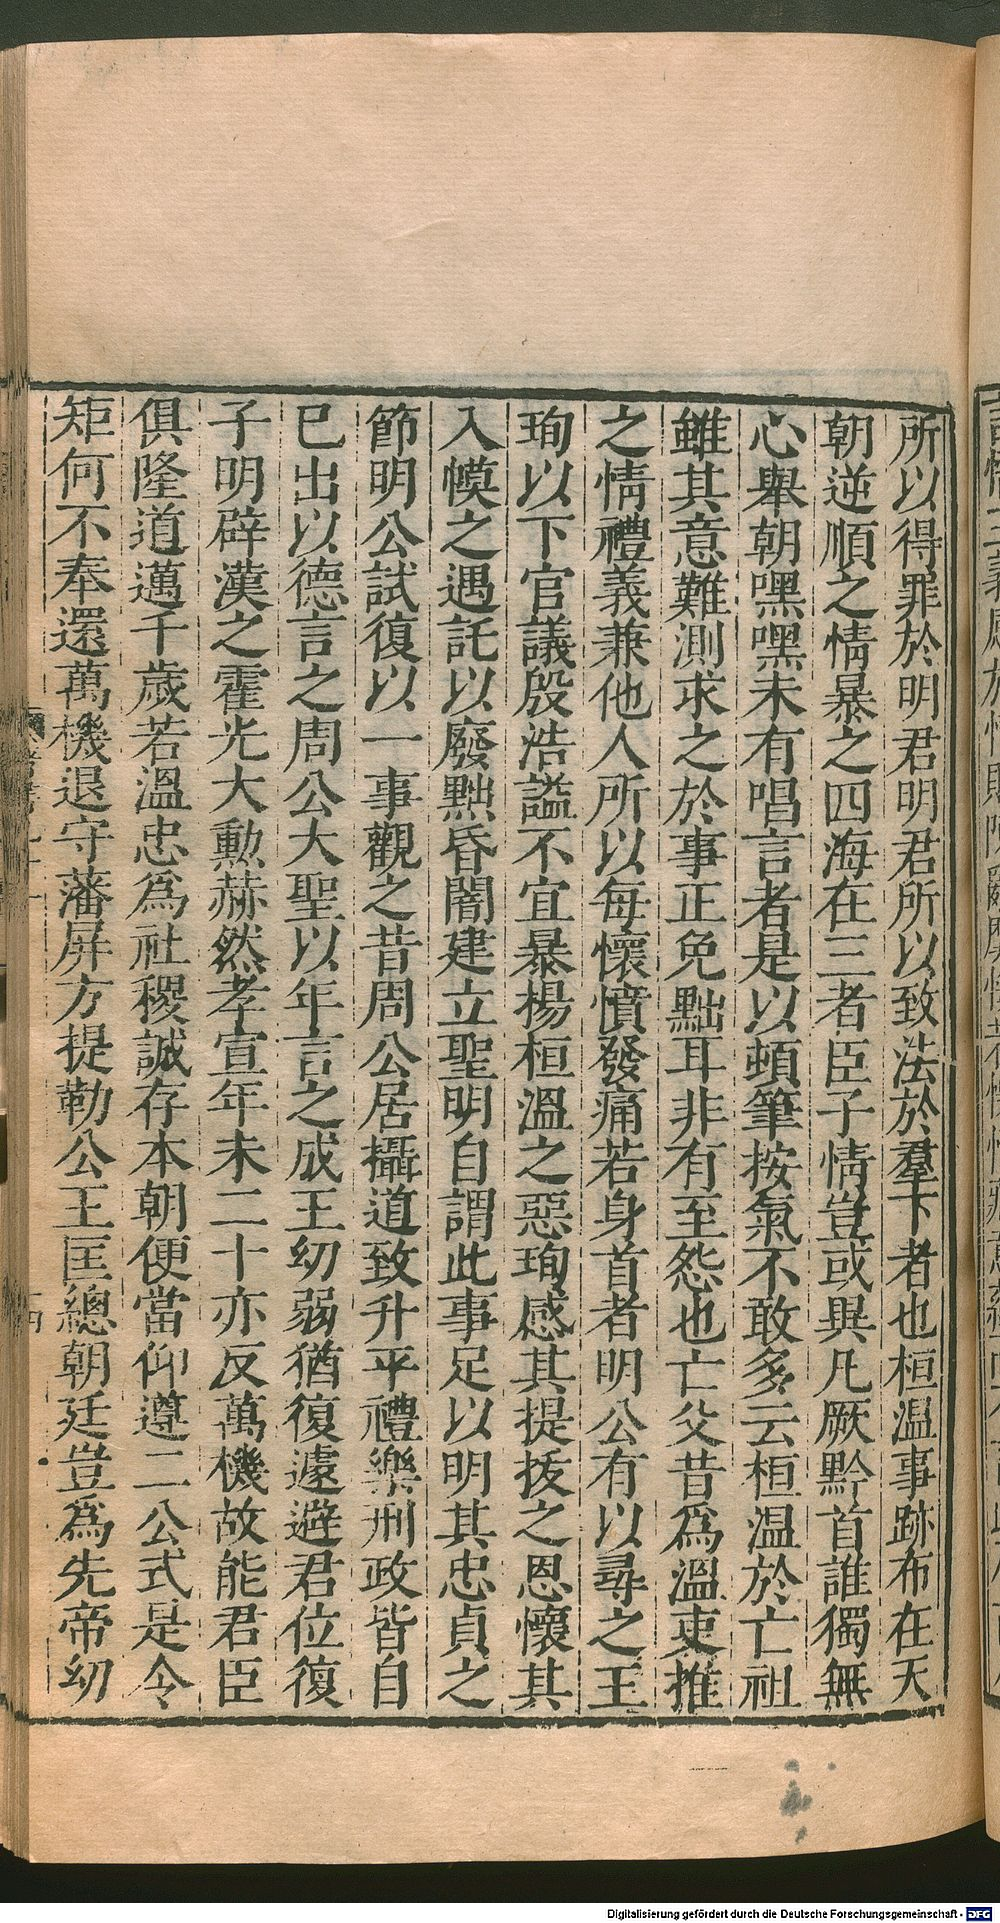 所以得罪於明君明君所以致法於羣下者也桓温事跡布在天
朝逆順之情暴之四海在三者臣子情豈或異凡厥黔首誰獨無
心舉朝嘿嘿未有唱言者是以頓筆按氣不敢多云桓温於亡祖
雖其意難測求之於事正免黜耳非有至怨也亡父昔爲溫吏推
之情禮義兼他人所以每懷憤發痛若身首者明公有以尋之王
珣以下官議殷浩謚不宜暴揚桓溫之惡珣感其提拔之恩懷其
入幙之遇託以廢黜昏闇建立聖明自謂此事足以明其忠貞之
節明公試復以一事觀之昔周公居攝道致升平禮樂刑政皆自
已出以德言之周公大聖以年言之成王幼弱猶復遽避君位復
子明辟漢之霍光大勳赫然孝宣年未二十亦反萬機故能君臣
俱隆道邁千歲若溫忠爲社稷誠存本朝便當仰遵二公式是令
矩何不奉還萬機退守藩屏方提勒公王匡總朝廷豈爲先帝幼
Digitalisierung gefördert durch die Deutsche Forschungsgemeinschaft - DFG